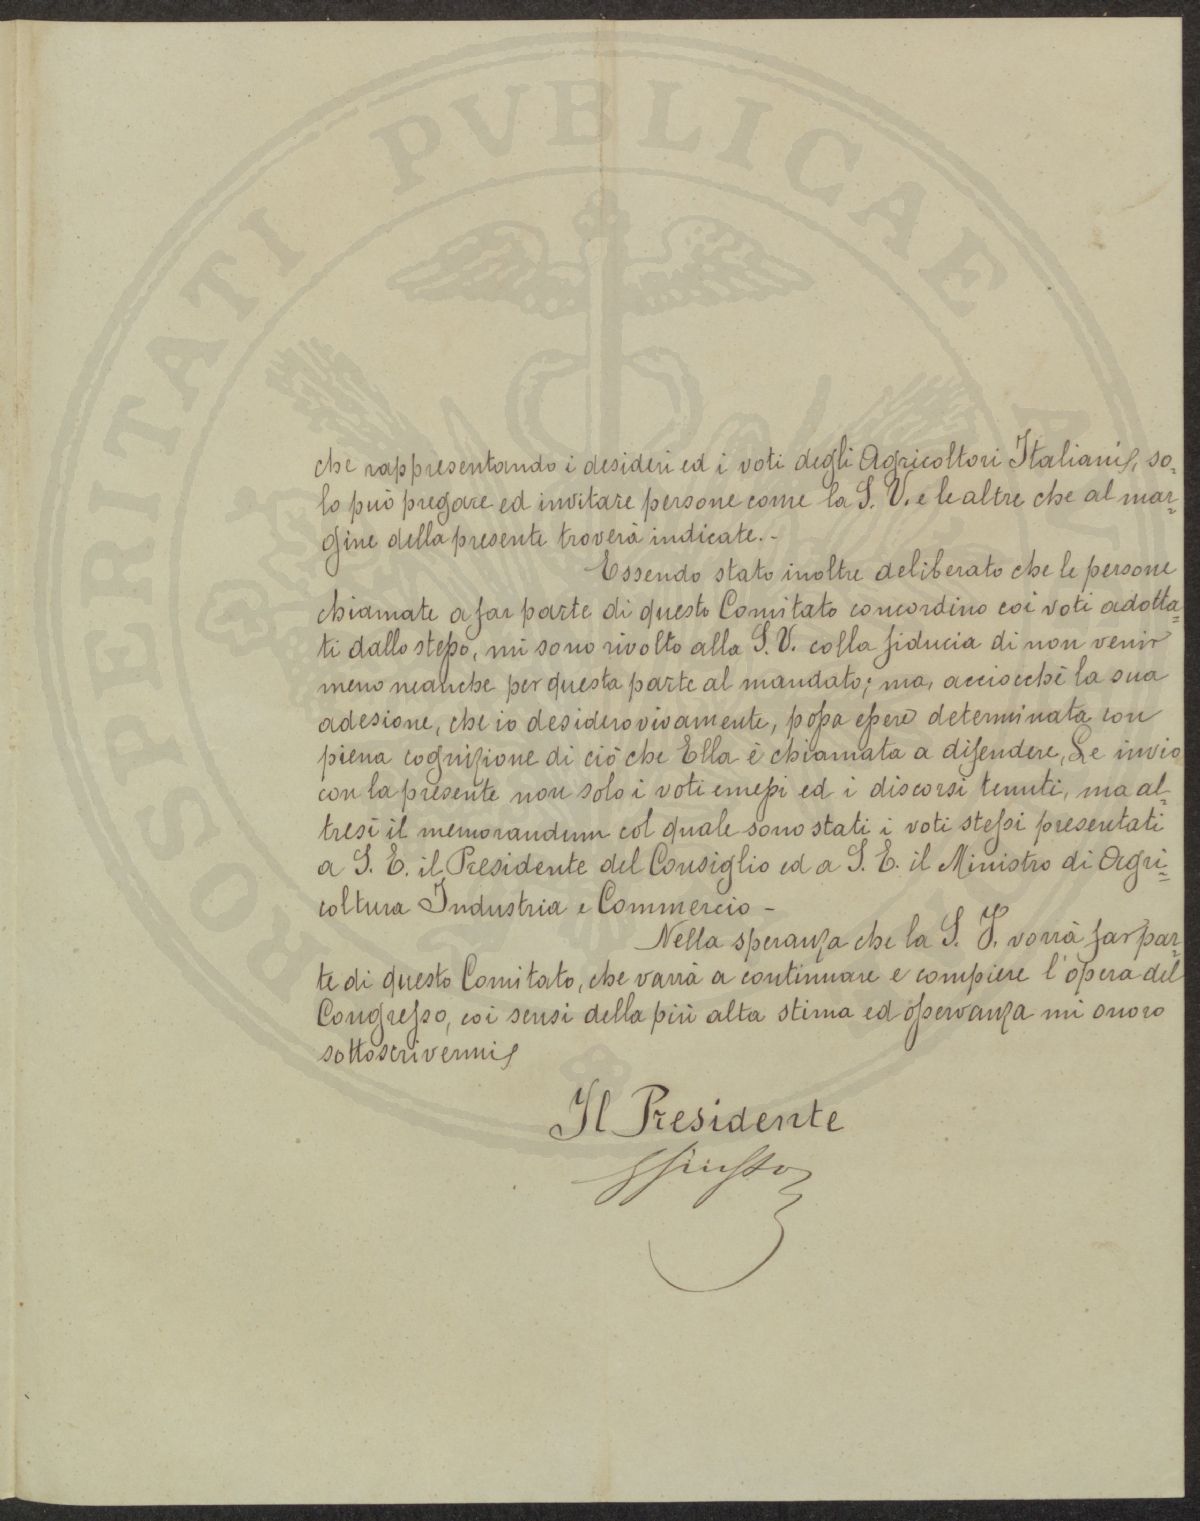 PROSPERITATI PVBLICAE A
che rappresentando i desideri ed i voti degli Agricoltori Italiani, so-
lo può pregare ed invitare persone come la S. V. e le altre che al mar=
gine della presente troverà indicate.-
Essendo stato inoltre deliberato che le persone
chiamate a far parte di questo Comitato concordino coi voti adotta=
ti dallo stesso, mi sono rivolto alla S. V. colla fiducia di non venir
meno neanche per questa parte al mandato; ma, acciocchè la sua
adesione, che io desidero vivamente, possa essere determinata con
piena cognizione di ciò che Ella è chiamata a difendere, Le invio
con la presente non solo i voti emessi ed i discorsi tenuti, ma al=
tresì il memorandum col quale sono stati i voti stessi presentati
a S. E. il Presidente del Consiglio ed a S. E. il Ministro di Agri=
coltura Industria e Commercio -
Nella speranza che la S. V. vorrà far par=
te di questo Comitato, che varrà a continuare e compiere l'opera del
Congresso, coi sensi della più alta stima ed osservanza mi onoro
sottoscrivermi
Il Presidente